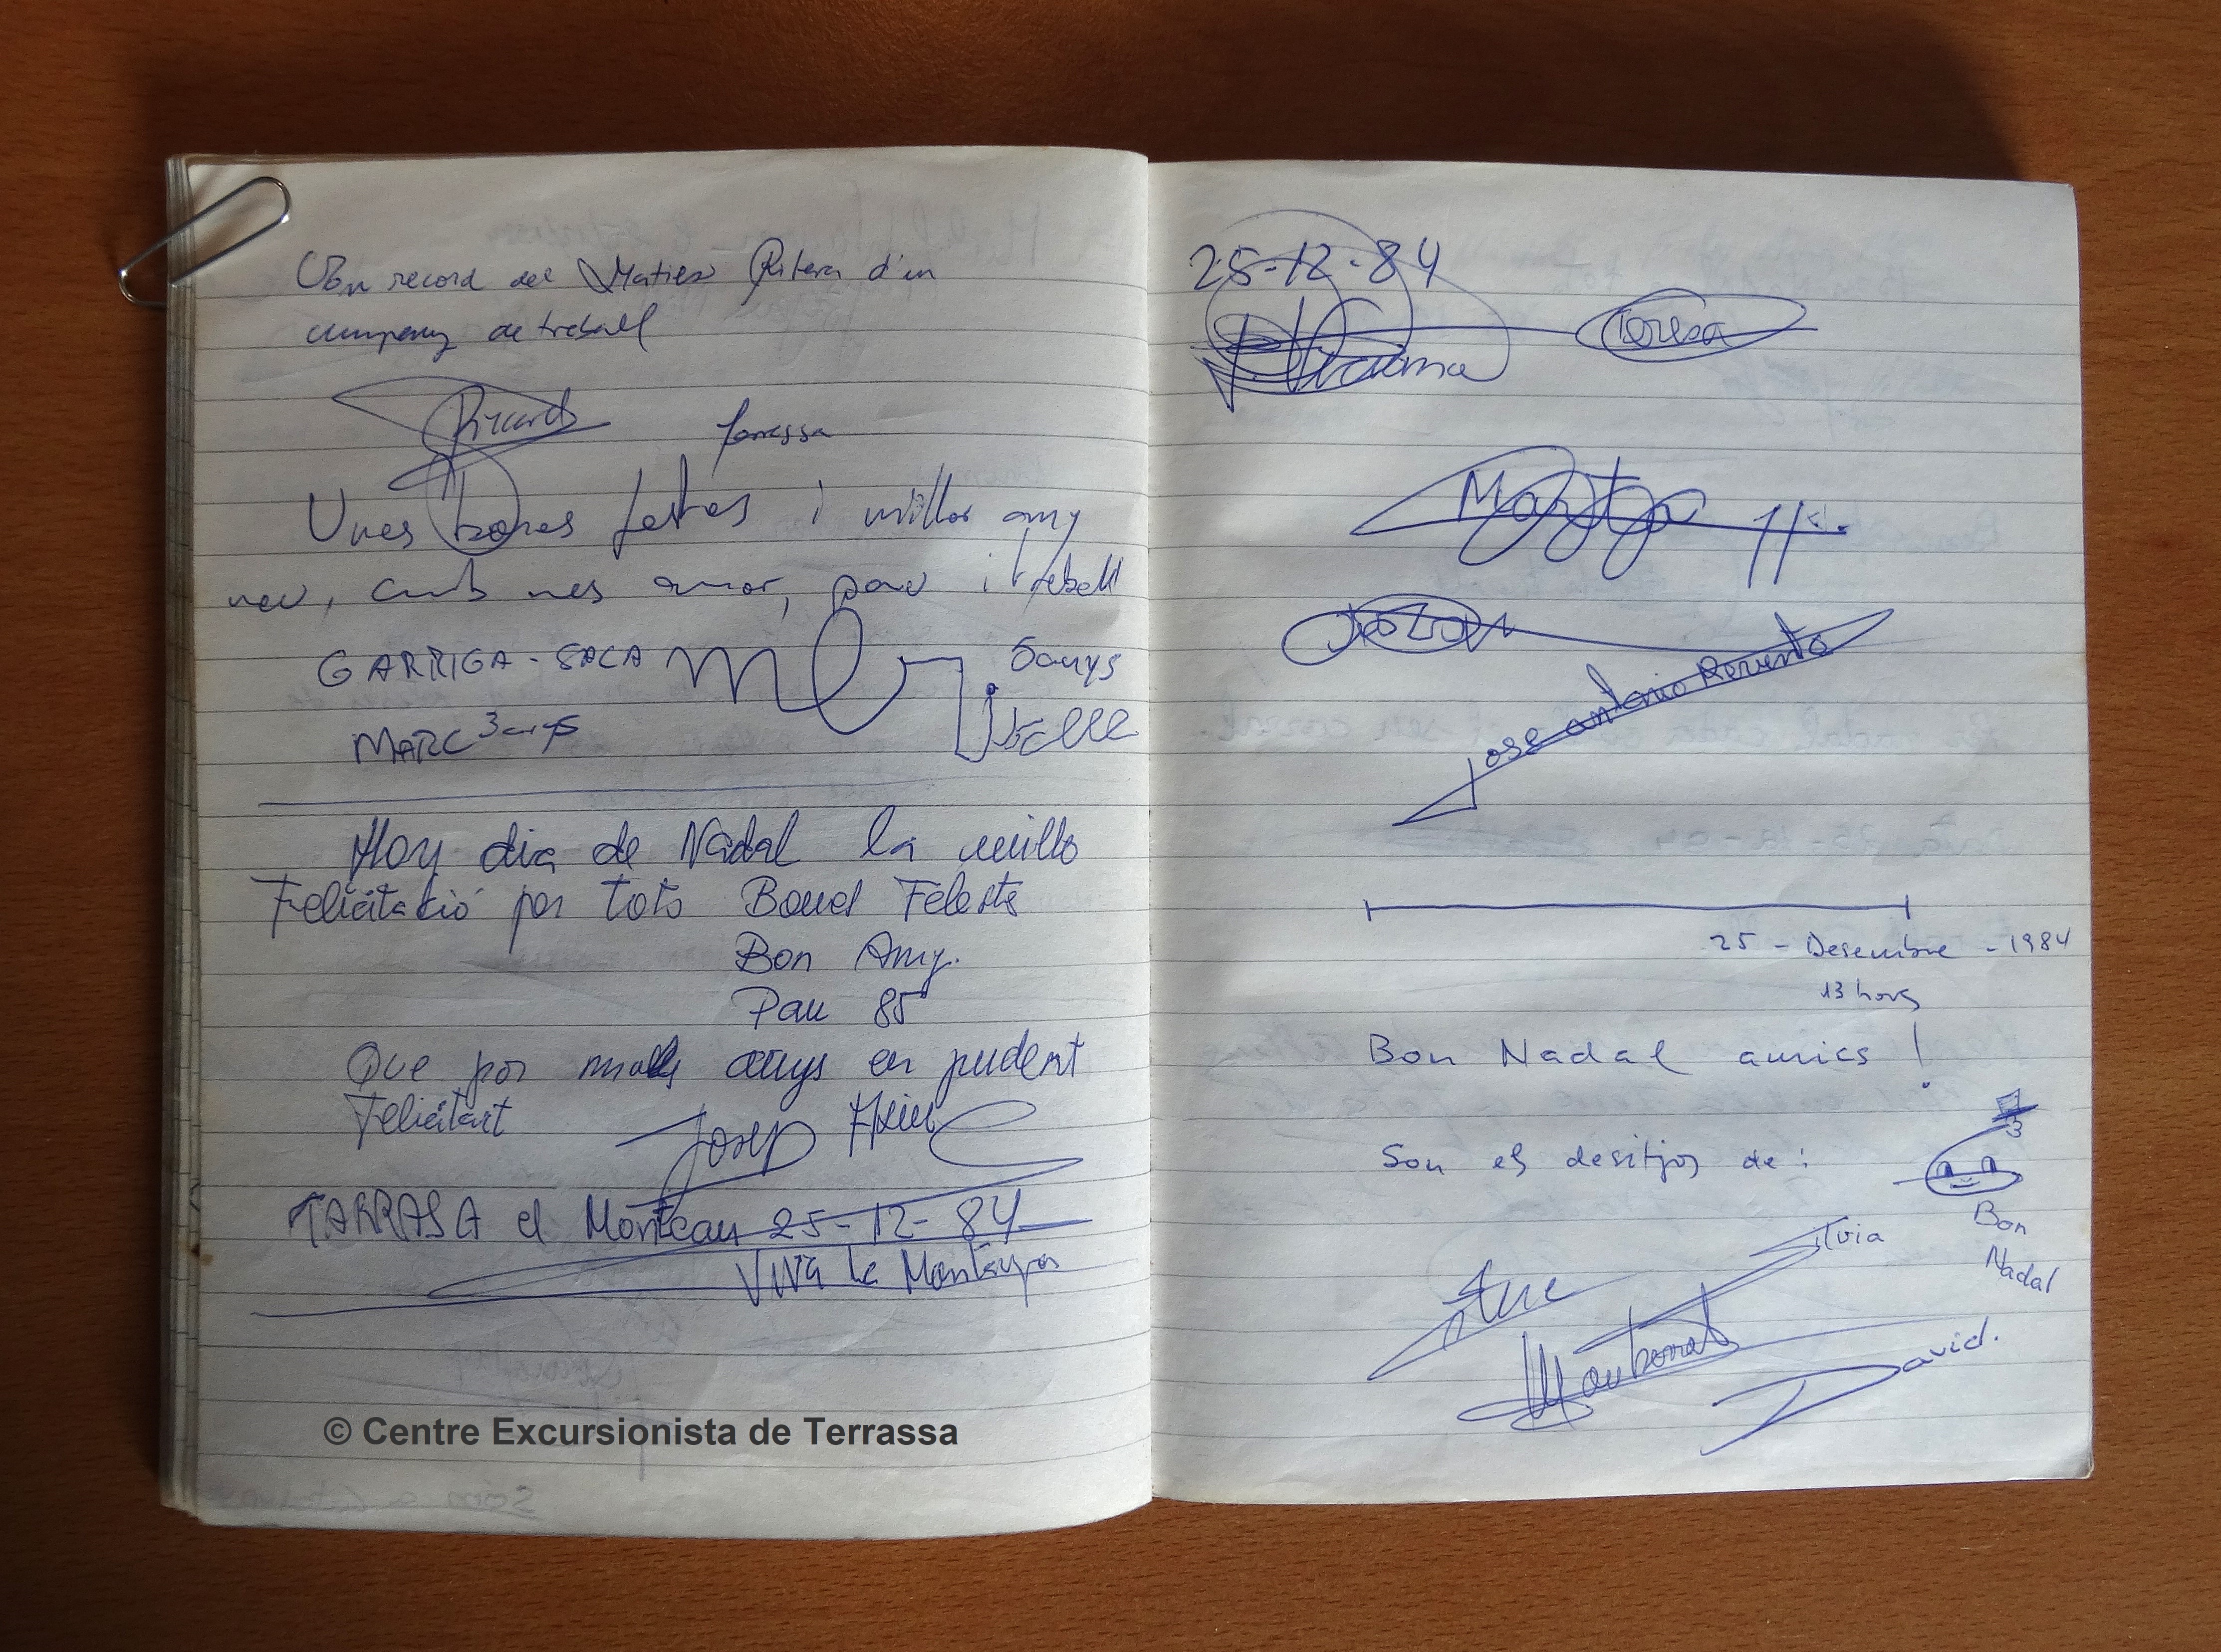 Un record del Maties Ribera d'un
company de treball
Ricard Terrassa
Unes bones festes i millor any
nou, amb mes amor, pau i treball
GARRIGA - SACA 5 anys
MARC 3 anys
Hoy dia de Nadal la millo
Felicitació por tots Bones Festes
Bon Any.
Pau 85
Que por molts anys en pudent
Felicitart
Josep
TARRASA el Montcau 25-12-84
Viva la Montanya
© Centre Excursionista de Terrassa
25-12-84
Teresa
Montse
Jose antonio
25 - Desembre - 1984
13 hores
Bon Nadal amics !
Son els desitjos de :
Silvia
Bon
Nadal
Montserrat
David.